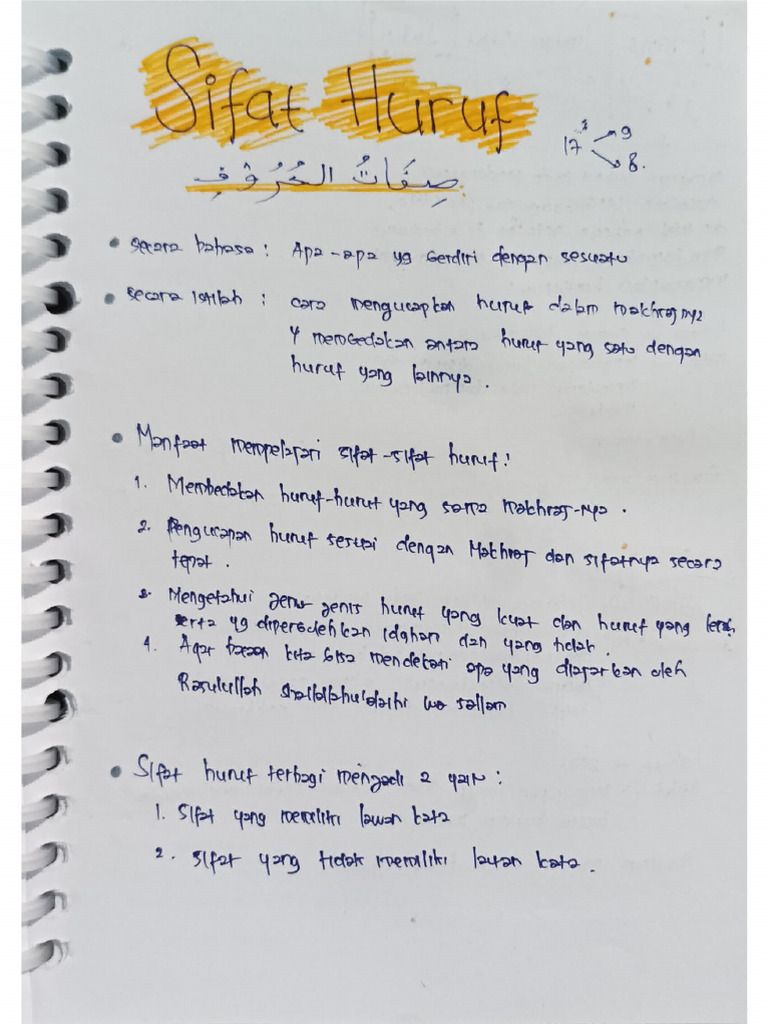 Sifat Huruf
17 9
8.
صِفَاتُ الحُرُوْفِ
• Secara bahasa : Apa-apa yg berdiri dengan sesuatu
• Secara Istilah : cara mengucapkan huruf dalam makhrajnya
& membedakan antara huruf yang satu dengan
huruf yang lainnya .
• Manfaat mempelajari sifat-sifat huruf !
1. Membedakan huruf-huruf yang sama makhraj-nya .
2. Pengucapan huruf sesuai dengan Makhraj dan sifatnya secara
tepat .
3. Mengetahui jenis jenis huruf yang kuat dan huruf yang
serta yg diperbolehkan idgham dan yang tidak .
4. Agar bacaan kita bisa mendekati apa yang diajarkan oleh
Rasulullah wa sallam
• Sifat huruf terbagi menjadi 2 yaitu :
1. Sifat yang memiliki lawan kata
2. Sifat yang tidak memiliki lawan kata .